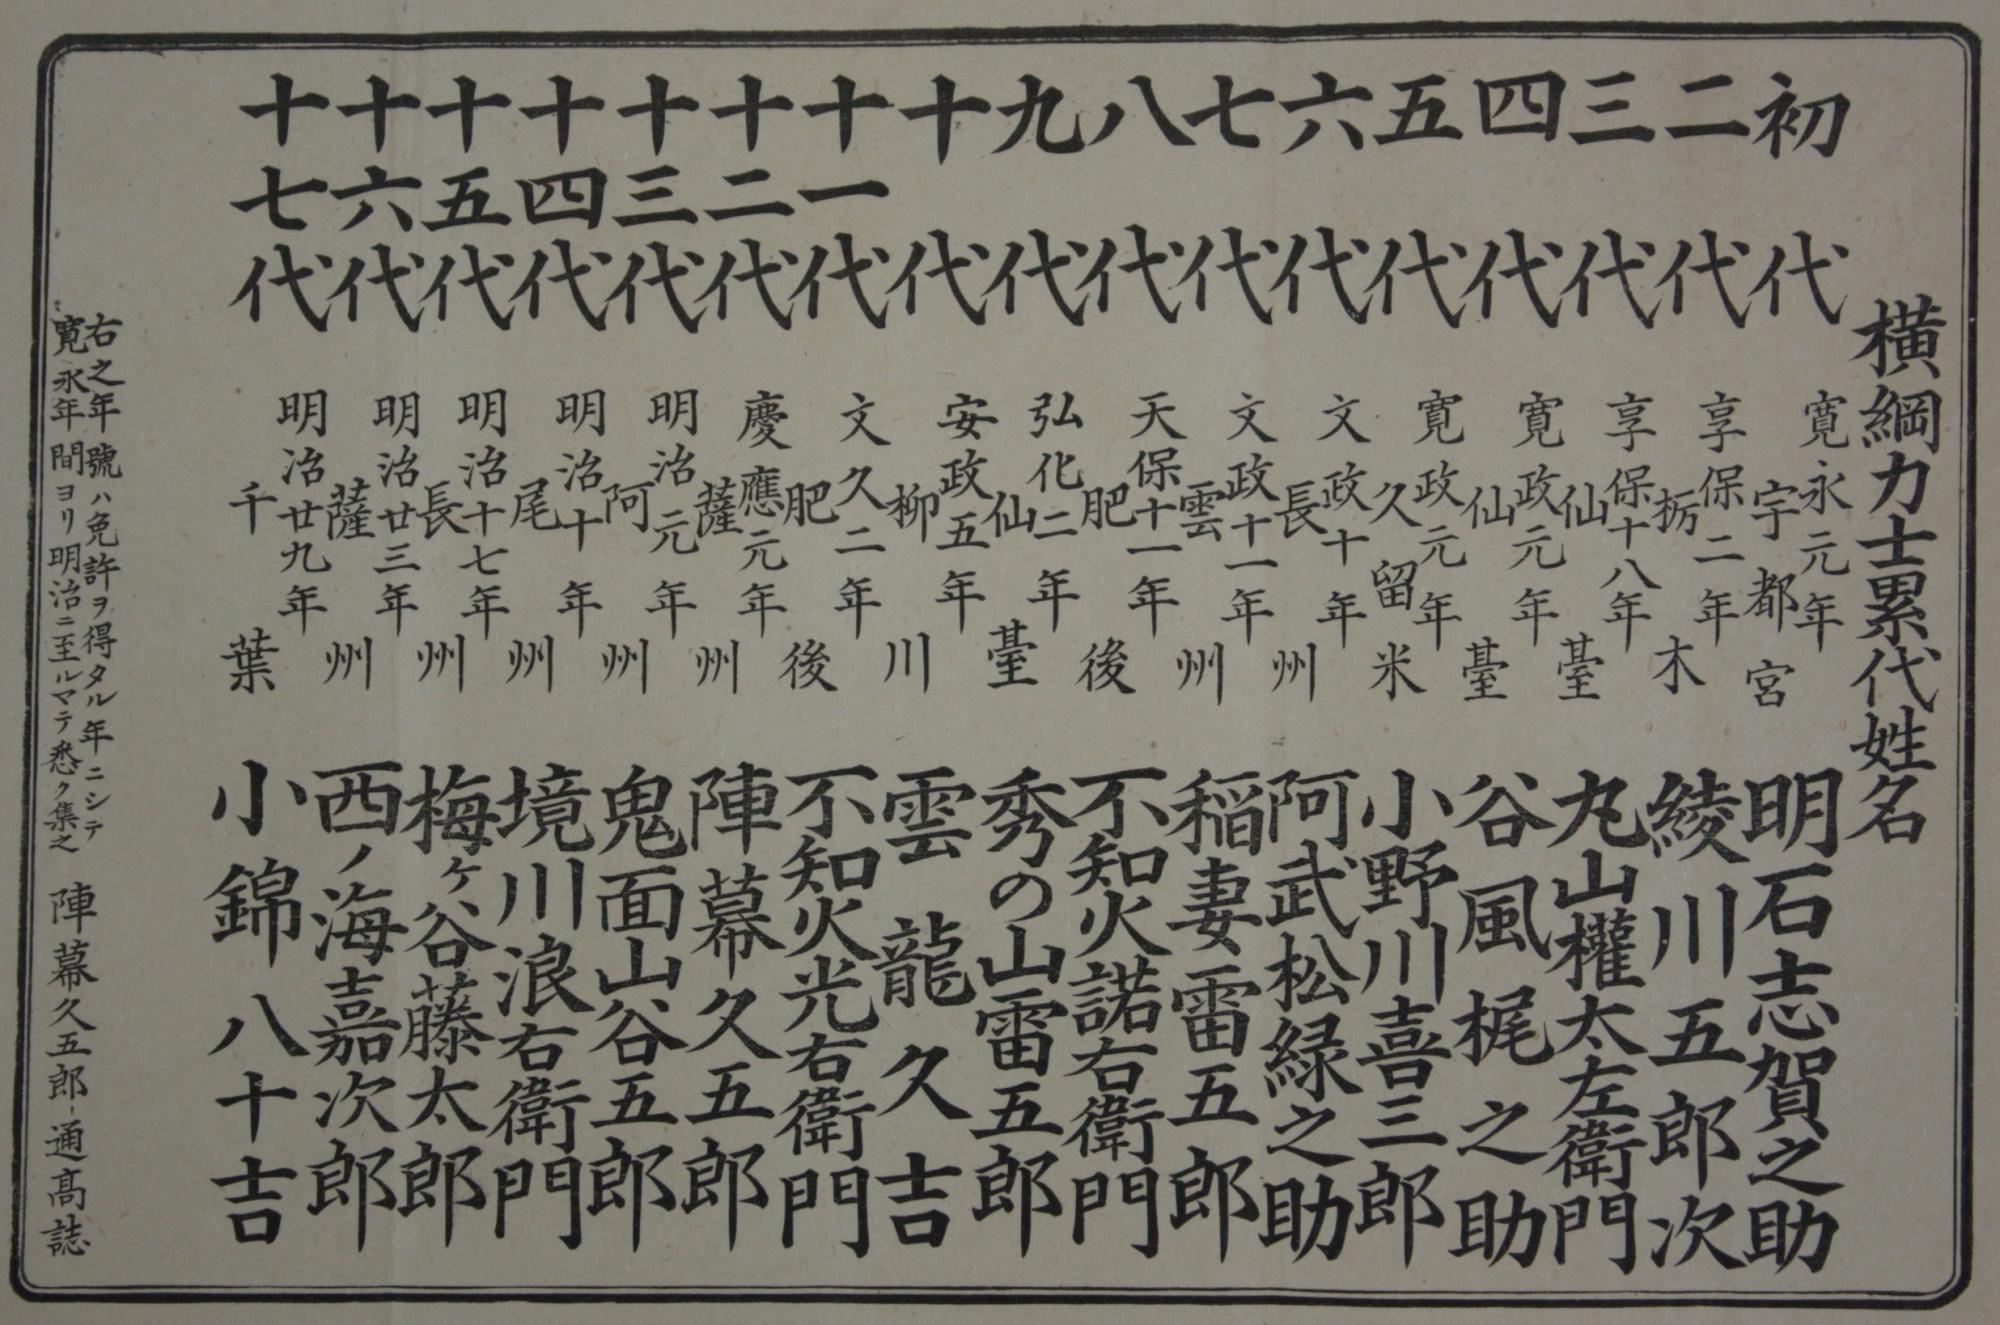 横綱力士累代姓名
初代 寛永元年 宇都宮 明石志賀之助
二代 享保二年 栃木 綾川五郎次
三代 享保十八年 仙臺 丸山權太左衛門
四代 寛政元年 仙臺 谷風梶之助
五代 寛政元年 久留米 小野川喜三郎
六代 文政十年 長州 阿武松緑之助
七代 文政十一年 雲州 稲妻雷五郎
八代 天保十一年 肥後 不知火諾右衛門
九代 弘化二年 仙臺 秀の山雷五郎
十代 安政五年 柳川 雲龍久吉
十一代 文久二年 肥後 不知火光右衛門
十二代 慶應元年 薩州 陣幕久五郎
十三代 明治元年 阿州 鬼面山谷五郎
十四代 明治十年 尾州 境川浪右衛門
十五代 明治十七年 長州 梅ヶ谷藤太郎
十六代 明治廿三年 薩州 西ノ海嘉次郎
十七代 明治廿九年 千葉 小錦八十吉
右之年號ハ免許ヲ得タル年ニシテ
寛永年間ヨリ明治ニ至ルマテ悉ク集之 陣幕久五郎通髙誌